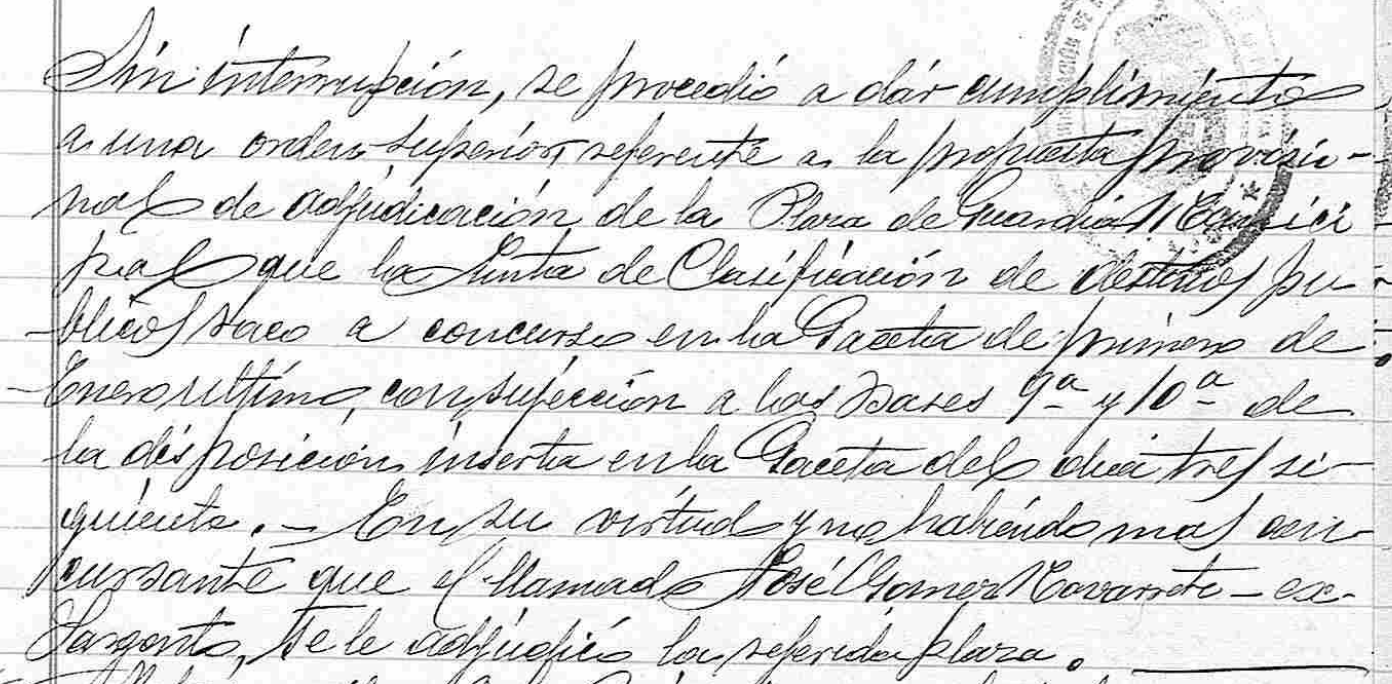 Sin interrupción, se procedió a dár cumplimiento
a una orden superior, referente a la propuesta provisio-
nal de adjudicación de la Plaza de Guardia Munici-
pal que la Junta de Clasificación de destinos pu-
blicos saco a concurso en la Gaceta de primero de
Enero ultimo, con sujección a las Bases 9ª y 10ª de
la disposición inserta en la Gaceta del dia tres si-
guiente. - En su virtud y no habiendo mas con-
cursante que el llamado José Gomez Navarrete - ex-
Sargento, se le adjudicó la referida plaza.